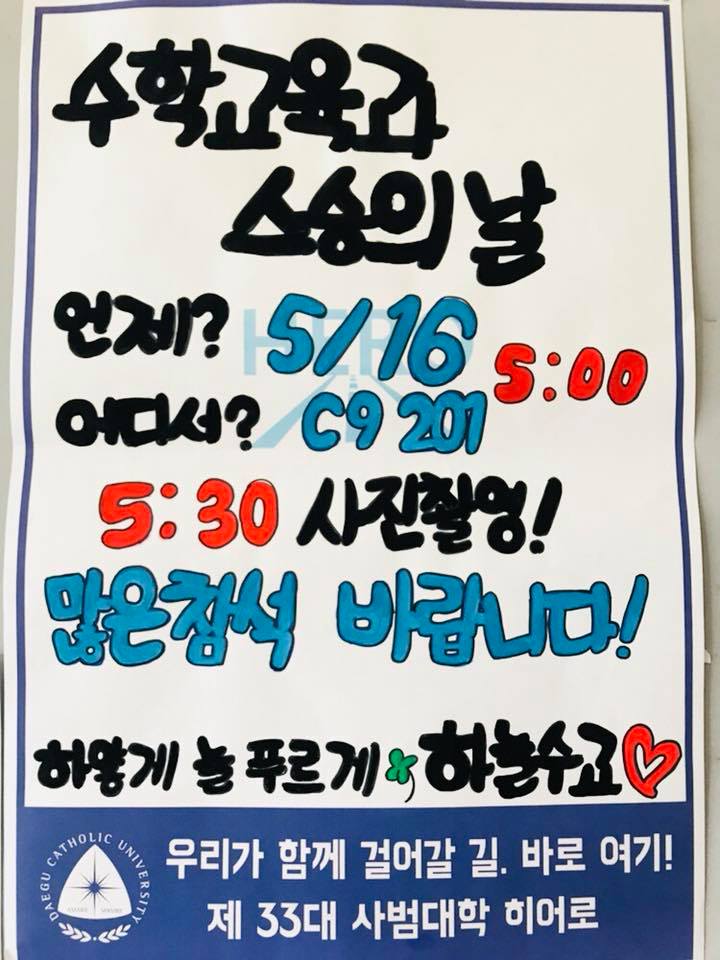 수학교육과
스승의 날
언제? 5/16 5:00
어디서? C9 201
5:30 사진촬영!
많은참석 바랍니다!
하얗게 늘 푸르게 하늘수교
DAEGU CATHOLIC UNIVERSITY
우리가 함께 걸어갈 길. 바로 여기!
제 33대 사범대학 히어로
HERO